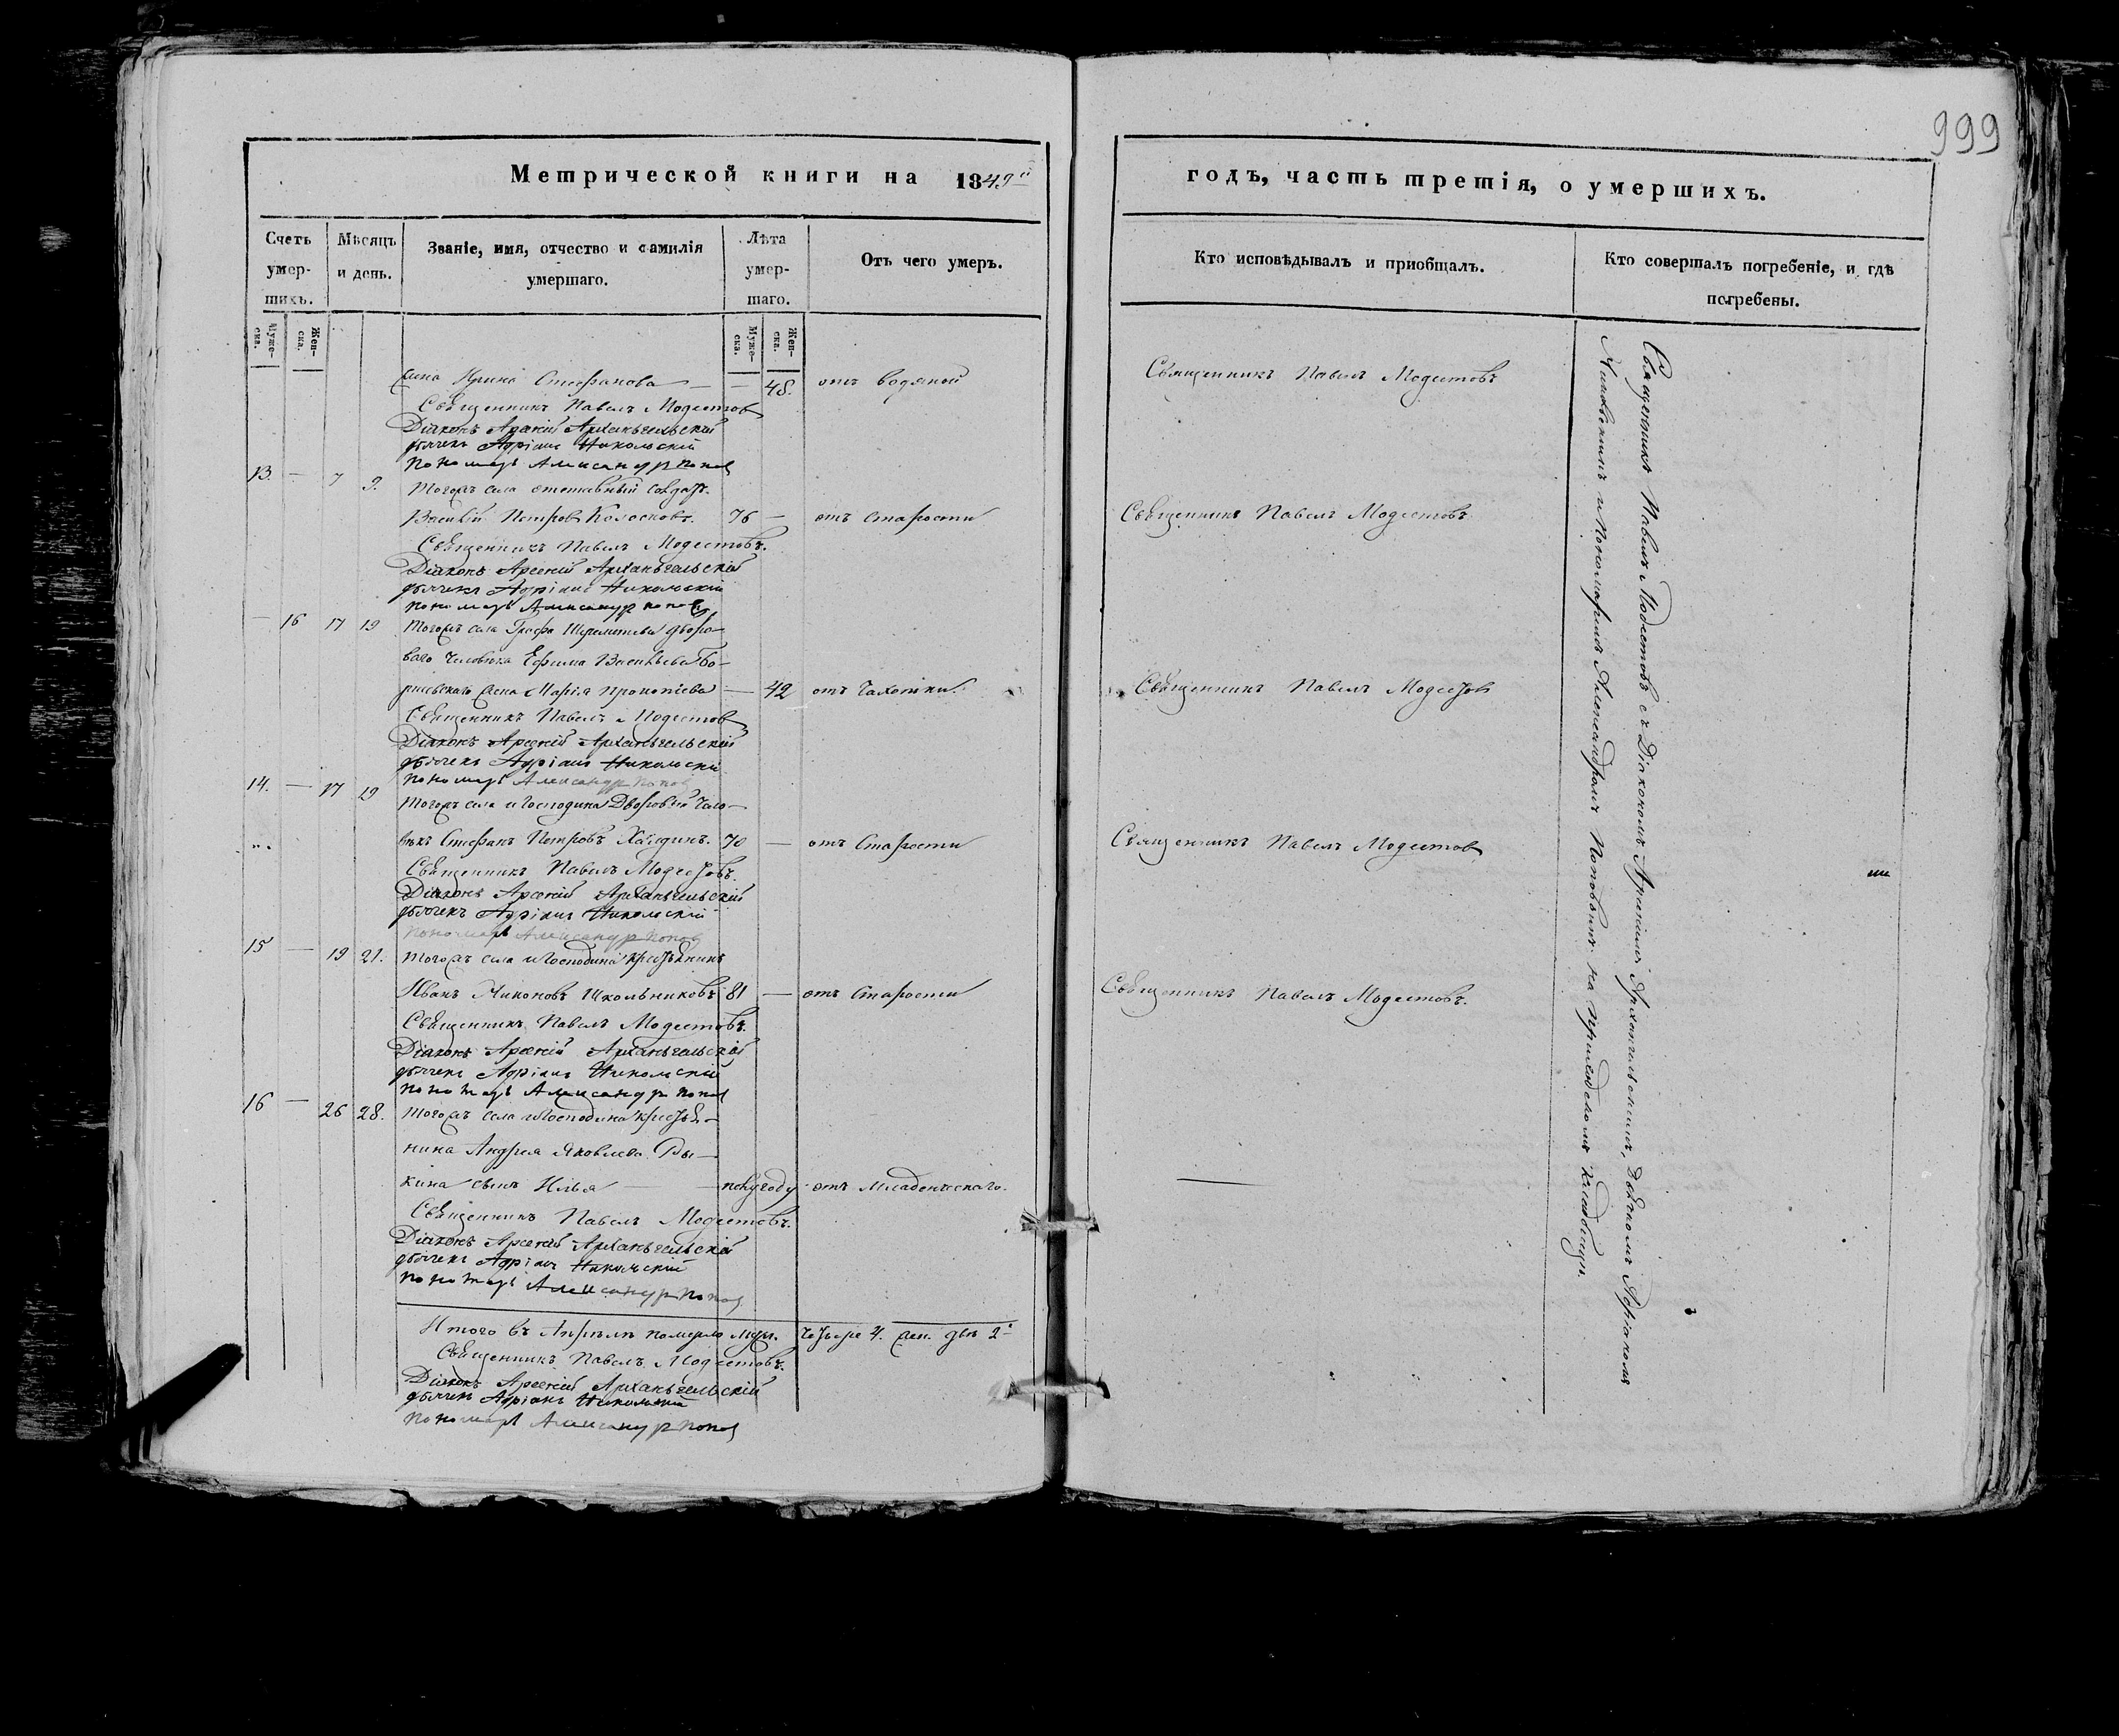 999
Метрической книги на 1849й
годъ, часть третія, о умершихъ.
Счетъ умер-шихъ.
Мѣсяцъ и день.
Званіе, имя, отчество и фамилія
умершаго.
Лѣта умер-шаго.
Отъ чего умеръ.
Кто исповѣдывалъ и пріобщалъ.
Кто совершалъ погребеніе, и гдѣ
погребены.
Муже-ска.
Жен-ска.
Муже-ска.
Жен-ска.
жена Ирина Стефанова — — 48. отъ водяной Священникъ Павелъ Модестовъ
Священникъ Павелъ Модестов
Діаконъ Арсеній Архангельскій
дьячекъ Адріанъ Никольскій
пономарь Александр Попов
13. — 7 9. Тогожъ села отставный солдатъ
Василій Петровъ Колосковъ. 76 — отъ старости Священникъ Павелъ Модестовъ
Священникъ Павелъ Модестовъ.
Діаконъ Арсеній Архангельскій
дьячекъ Адріанъ Никольскій
пономарь Александр Попов
— 16 17 19 Тогожъ села Графа Шереметева дворо-
ваго человѣка Ефима Васильева Бо-
рисовскаго жена Марія Прокопіева — 42 отъ чахотки. Священникъ Павелъ Модестов
Священникъ Павелъ Модестов
Діаконъ Арсеній Архангельскій
дьячекъ Адріанъ Никольскій
пономарь Александр Попов
14. — 17 19 Тогожъ села и Господина Дворовый чело-
вѣкъ Стефанъ Петровъ 70 — отъ старости Священникъ Павелъ Модестов
Священникъ Павелъ Модестовъ.
Діаконъ Арсеній Архангельскій
дьячекъ Адріанъ Никольскій
пономарь Александр Попов
15 — 19 21. Тогожъ села и Господина крестьянинъ
Иванъ Никоновъ Школьниковъ 81 — отъ старости Священникъ Павелъ Модестовъ.
Священникъ Павелъ Модестовъ.
Діаконъ Арсеній Архангельскій
дьячекъ Адріанъ Никольскій
пономарь Александр Попов
16 — 26 28. Тогожъ села и Господина крестья-
нина Андрея Яковлева Ры-
кина сынъ Илья — полугоду отъ младенческаго.
Священникъ Павелъ Модестовъ.
Діаконъ Арсеній Архангельскій
дьячекъ Адріанъ Никольскій
пономарь Александр Попов
Итого въ Апрѣлѣ померло муж. четыре 4. жен. двѣ 2
Священникъ Павелъ Модестовъ.
Діаконъ Арсеній Архангельскій
дьячекъ Адріанъ Никольскій
пономарь Александр Попов
Священникъ Павелъ Модестовъ съ Діакономъ Арсеніемъ Архангельскимъ, Дьячкомъ Адріаномъ
Никольскимъ и Пономаремъ Александромъ Поповымъ на приходскомъ кладбищѣ.